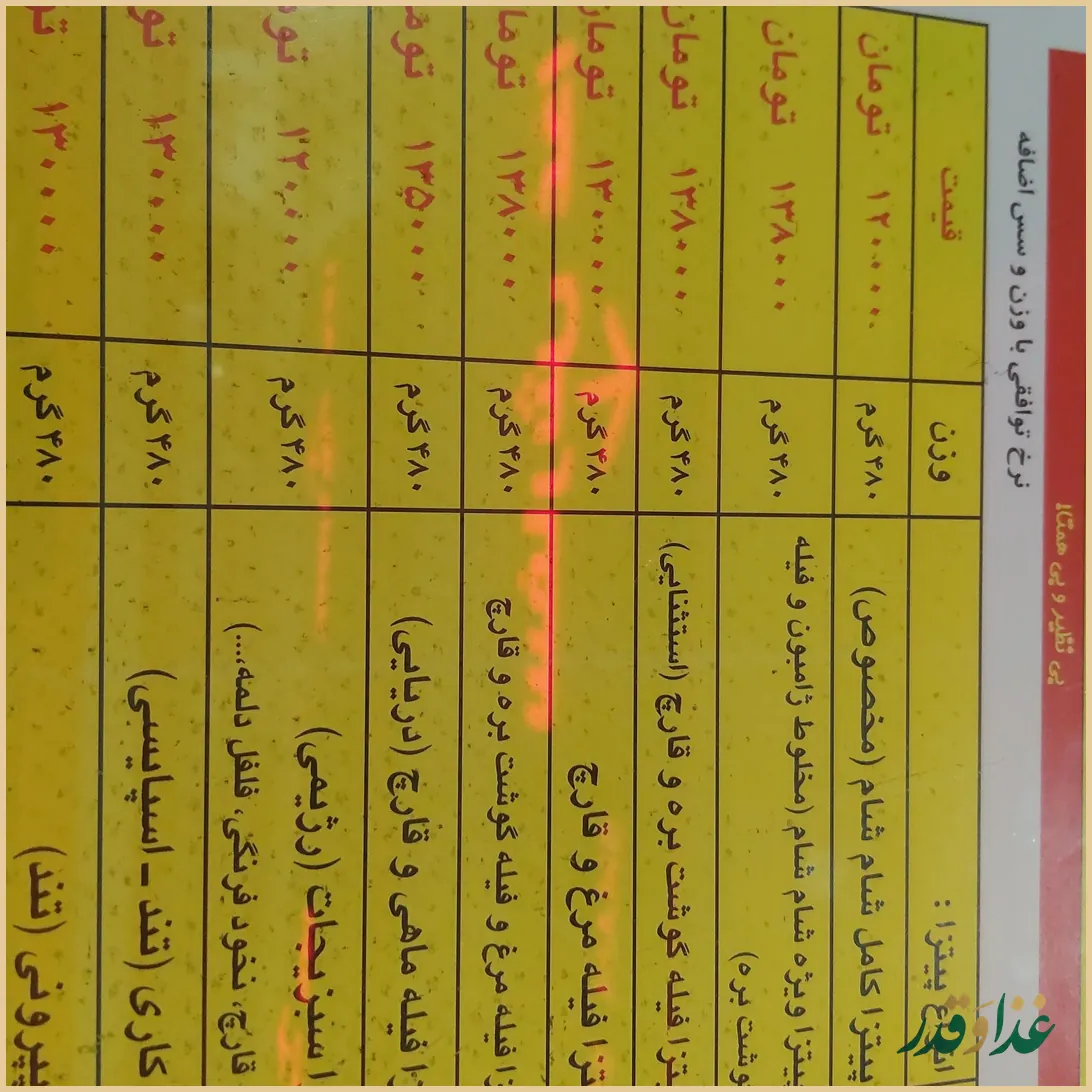 بی نظیر و بی همتا!
نرخ توافقی با وزن و سس اضافه
پیتزا : وزن قیمت
پیتزا کامل شام شام (مخصوص) ۴۸۰ گرم ۱۲۰۰۰۰ تومان
پیتزا ویژه شام شام (مخلوط ژامبون و فیله ۴۸۰ گرم ۱۳۸۰۰۰ تومان
گوشت بره)
فیله گوشت بره و قارچ (استثنایی) ۴۸۰ گرم ۱۳۸۰۰۰ تومان
فیله مرغ و قارچ ۴۸۰ گرم ۱۳۰۰۰۰ تومان
فیله مرغ و فیله گوشت بره و قارچ ۴۸۰ گرم ۱۳۸۰۰۰
فیله ماهی و قارچ (دریایی) ۴۸۰ گرم ۱۳۵۰۰۰
سبزیجات (رژیمی) ۴۸۰ گرم ۱۲۰۰۰۰
قارچ، نخود فرنگی، فلفل دلمه،...)
کاری (تند ـ اسپایسی) ۴۸۰ گرم ۱۳۰۰۰۰
پپرونی (تند) ۴۸۰ گرم ۱۳۰۰۰۰
غذا و قدر